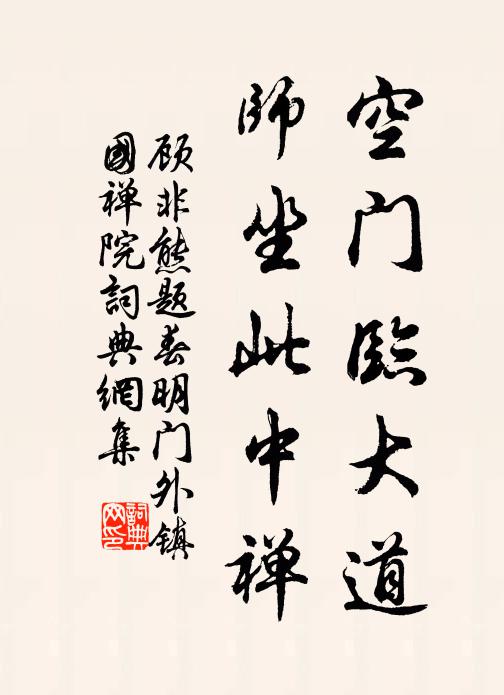 空门臨大道
师坐此中禅
顾非熊题春明门外镇
國禅院詞典網集
詞典
网印